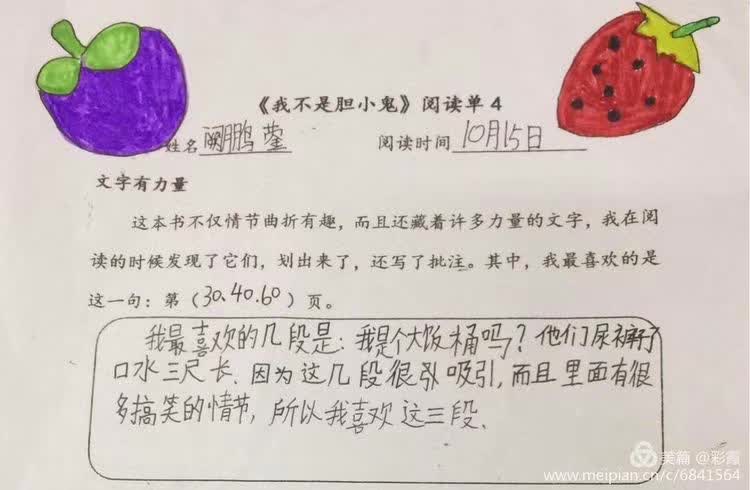 《我不是胆小鬼》阅读单 4
姓名 阙鹏蓥 阅读时间 10月15日
文字有力量
这本书不仅情节曲折有趣，而且还藏着许多力量的文字，我在阅
读的时候发现了它们，划出来了，还写了批注。其中，我最喜欢的是
这一句：第（30.40.60）页。
我最喜欢的几段是：我是个大饭桶吗？他们尿裤子
口水三尺长．因为这几段很吸引，而且里面有很
多搞笑的情节，所以我喜欢这三段．
美篇 @彩霞
www.meipian.cn/c/6841564